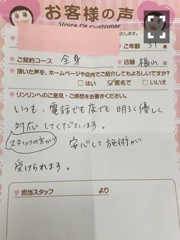 お客様の声
Voice Of customer
ご年齢 31
ご契約コース 全身 店舗
頂いた声を、ホームページや店内でご紹介してもよろしいですか？
□はい ☑匿名で □いいえ
リンリンへのご意見・ご感想をお書きください。
いつも、電話でも店でも明るく優しく
対応してくださいます。
スタッフの方が 安心して施術が
受けられます。
担当スタッフ より